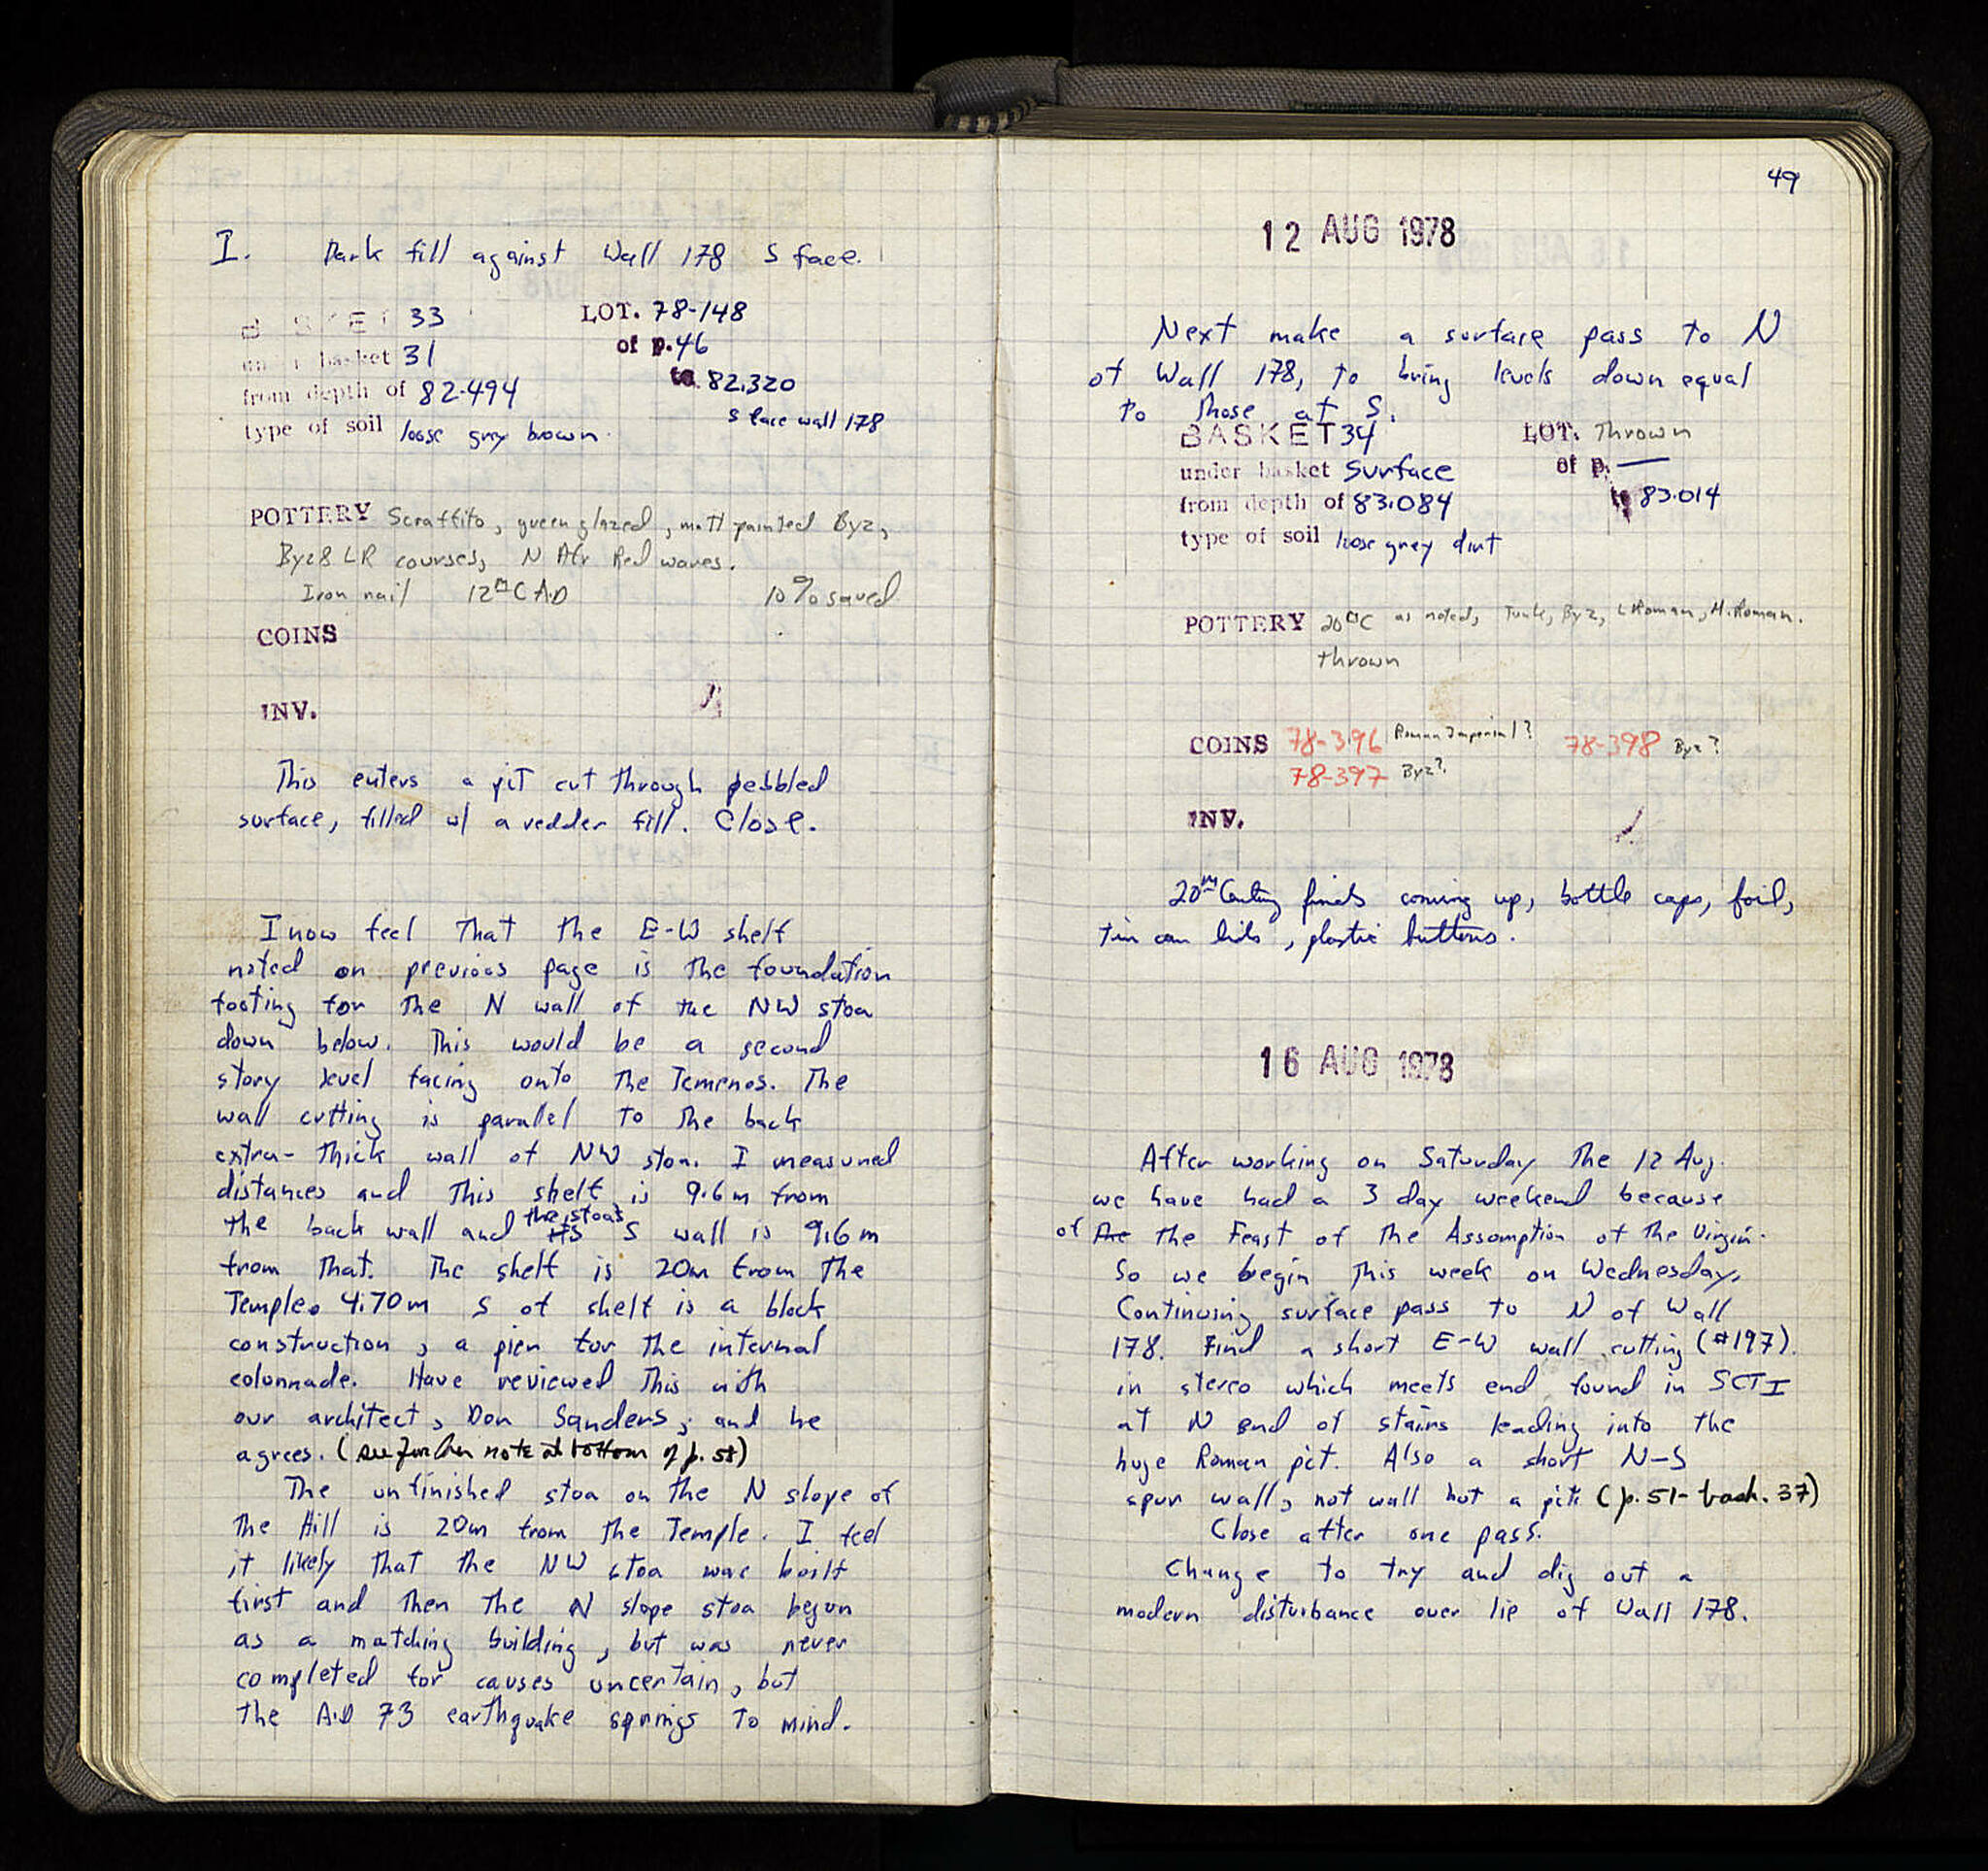 I. Dark fill against Wall 178 S face.
BASKET 33 LOT. 78-148
under basket 31 of p. 46
from depth of 82.494 to 82.320
type of soil loose grey brown S face wall 178
POTTERY Scraffito, green glazed, matt painted Byz,
Byz & LR courses, N Afr Red wares.
Iron nail 12th C A.D 10% saved
COINS
INV.
This enters a pit cut through pebbled
surface, filled w/ a redder fill. Close.
I now feel that the E-W shelf
noted on previous page is the foundation
footing for the N wall of the NW stoa
down below. This would be a second
story level facing onto the Temenos. The
wall cutting is parallel to the back
extra-thick wall of NW stoa. I measured
distances and this shelf is 9.6m from
the back wall and the stoa's S wall is 9.6m
from that. The shelf is 20m from the
Temple. 4.70m S of shelf is a block
construction, a pier for the internal
colonnade. Have reviewed this with
our architect, Don Sanders, and he
agrees. (see further note at bottom of p. 58)
The unfinished stoa on the N slope of
the Hill is 20m from the Temple. I feel
it likely that the NW stoa was built
first and then the N slope stoa begun
as a matching building, but was never
completed for causes uncertain, but
the A.D 73 earthquake springs to mind.
49
12 AUG 1978
Next make a surface pass to N
of Wall 178, to bring levels down equal
to those at S.
BASKET 34 LOT. Thrown
under basket Surface of p. —
from depth of 83.084 to 83.014
type of soil loose grey dirt
POTTERY 20th C as noted, Turk, Byz, L Roman, M. Roman.
thrown
COINS 78-396 Roman Imperial? 78-398 Byz?
78-397 Byz?
INV.
20th Century finds coming up, bottle caps, foil,
tin can lids, plastic buttons.
16 AUG 1978
After working on Saturday the 12 Aug.
we have had a 3 day weekend because
of the Feast of the Assumption of the Virgin.
So we begin this week on Wednesday.
Continuing surface pass to N of Wall
178. Find a short E-W wall cutting (#197).
in stereo which meets end found in SCT I
at N end of stairs leading into the
huge Roman pit. Also a short N-S
spur wall, not wall but a pit (p. 51 - bask. 37)
Close after one pass.
Change to try and dig out a
modern disturbance over lip of Wall 178.